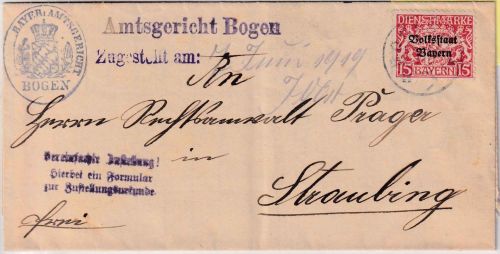 BAYER. AMTSGERICHT
BOGEN
Amtsgericht Bogen
Zugestellt am: 4. Juni 1919
DIENSTMARKE
Volksstaat
Bayern
15 BAYERN 15
An
Herrn Rechtsanwalt Prager
in
Straubing
Vereinfachte Zustellung!
Hierbei ein Formular
zur Zustellungsurkunde.
frei